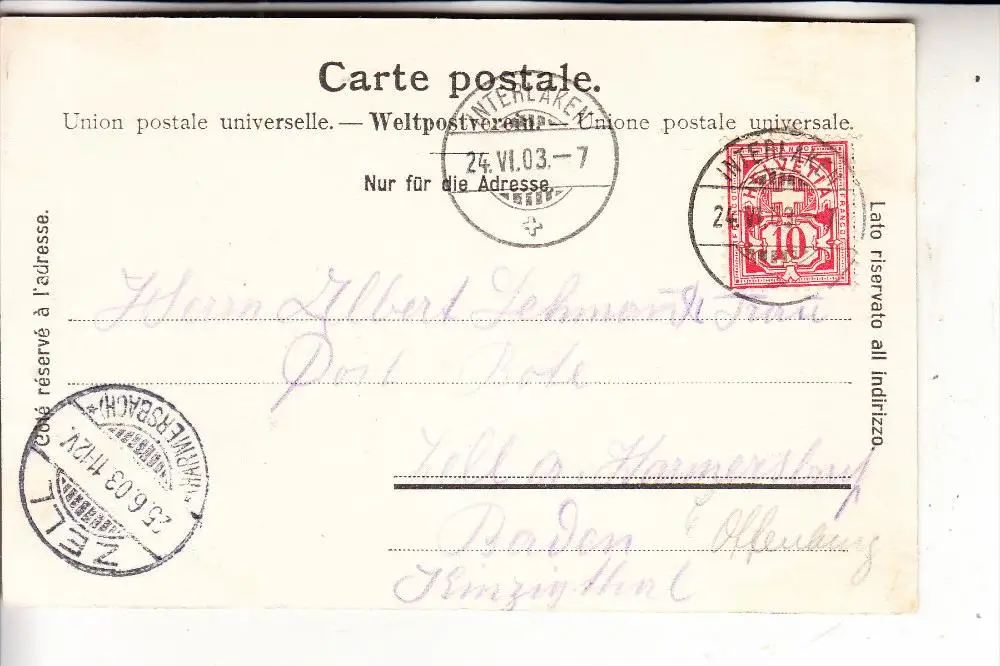 Carte postale.
Union postale universelle. — Weltpostverein. — Unione postale universale.
Nur für die Adresse.
INTERLAKEN
24.VI.03.–7
INTERLAKEN
24.VI.03.–7
FRANCO
HELVETIA
FRANCO
10
Côté réservé à l'adresse.
Lato riservato all indirizzo.
Herrn Albert Lehmann & Frau
Post Bote
Zell a. Harmersbach
Baden Offenburg
Kinzigthal
ZELL
(HARMERSBACH)
25.6.03.11-12V.